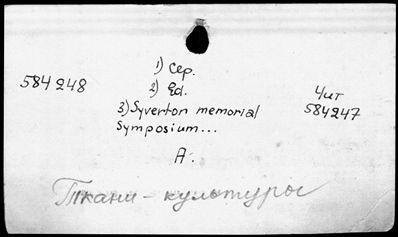 1) Сер.
584248
2) Ed.
Чит
3) Syverton memorial
584247
Symposium...
А.
Ткани - культуры